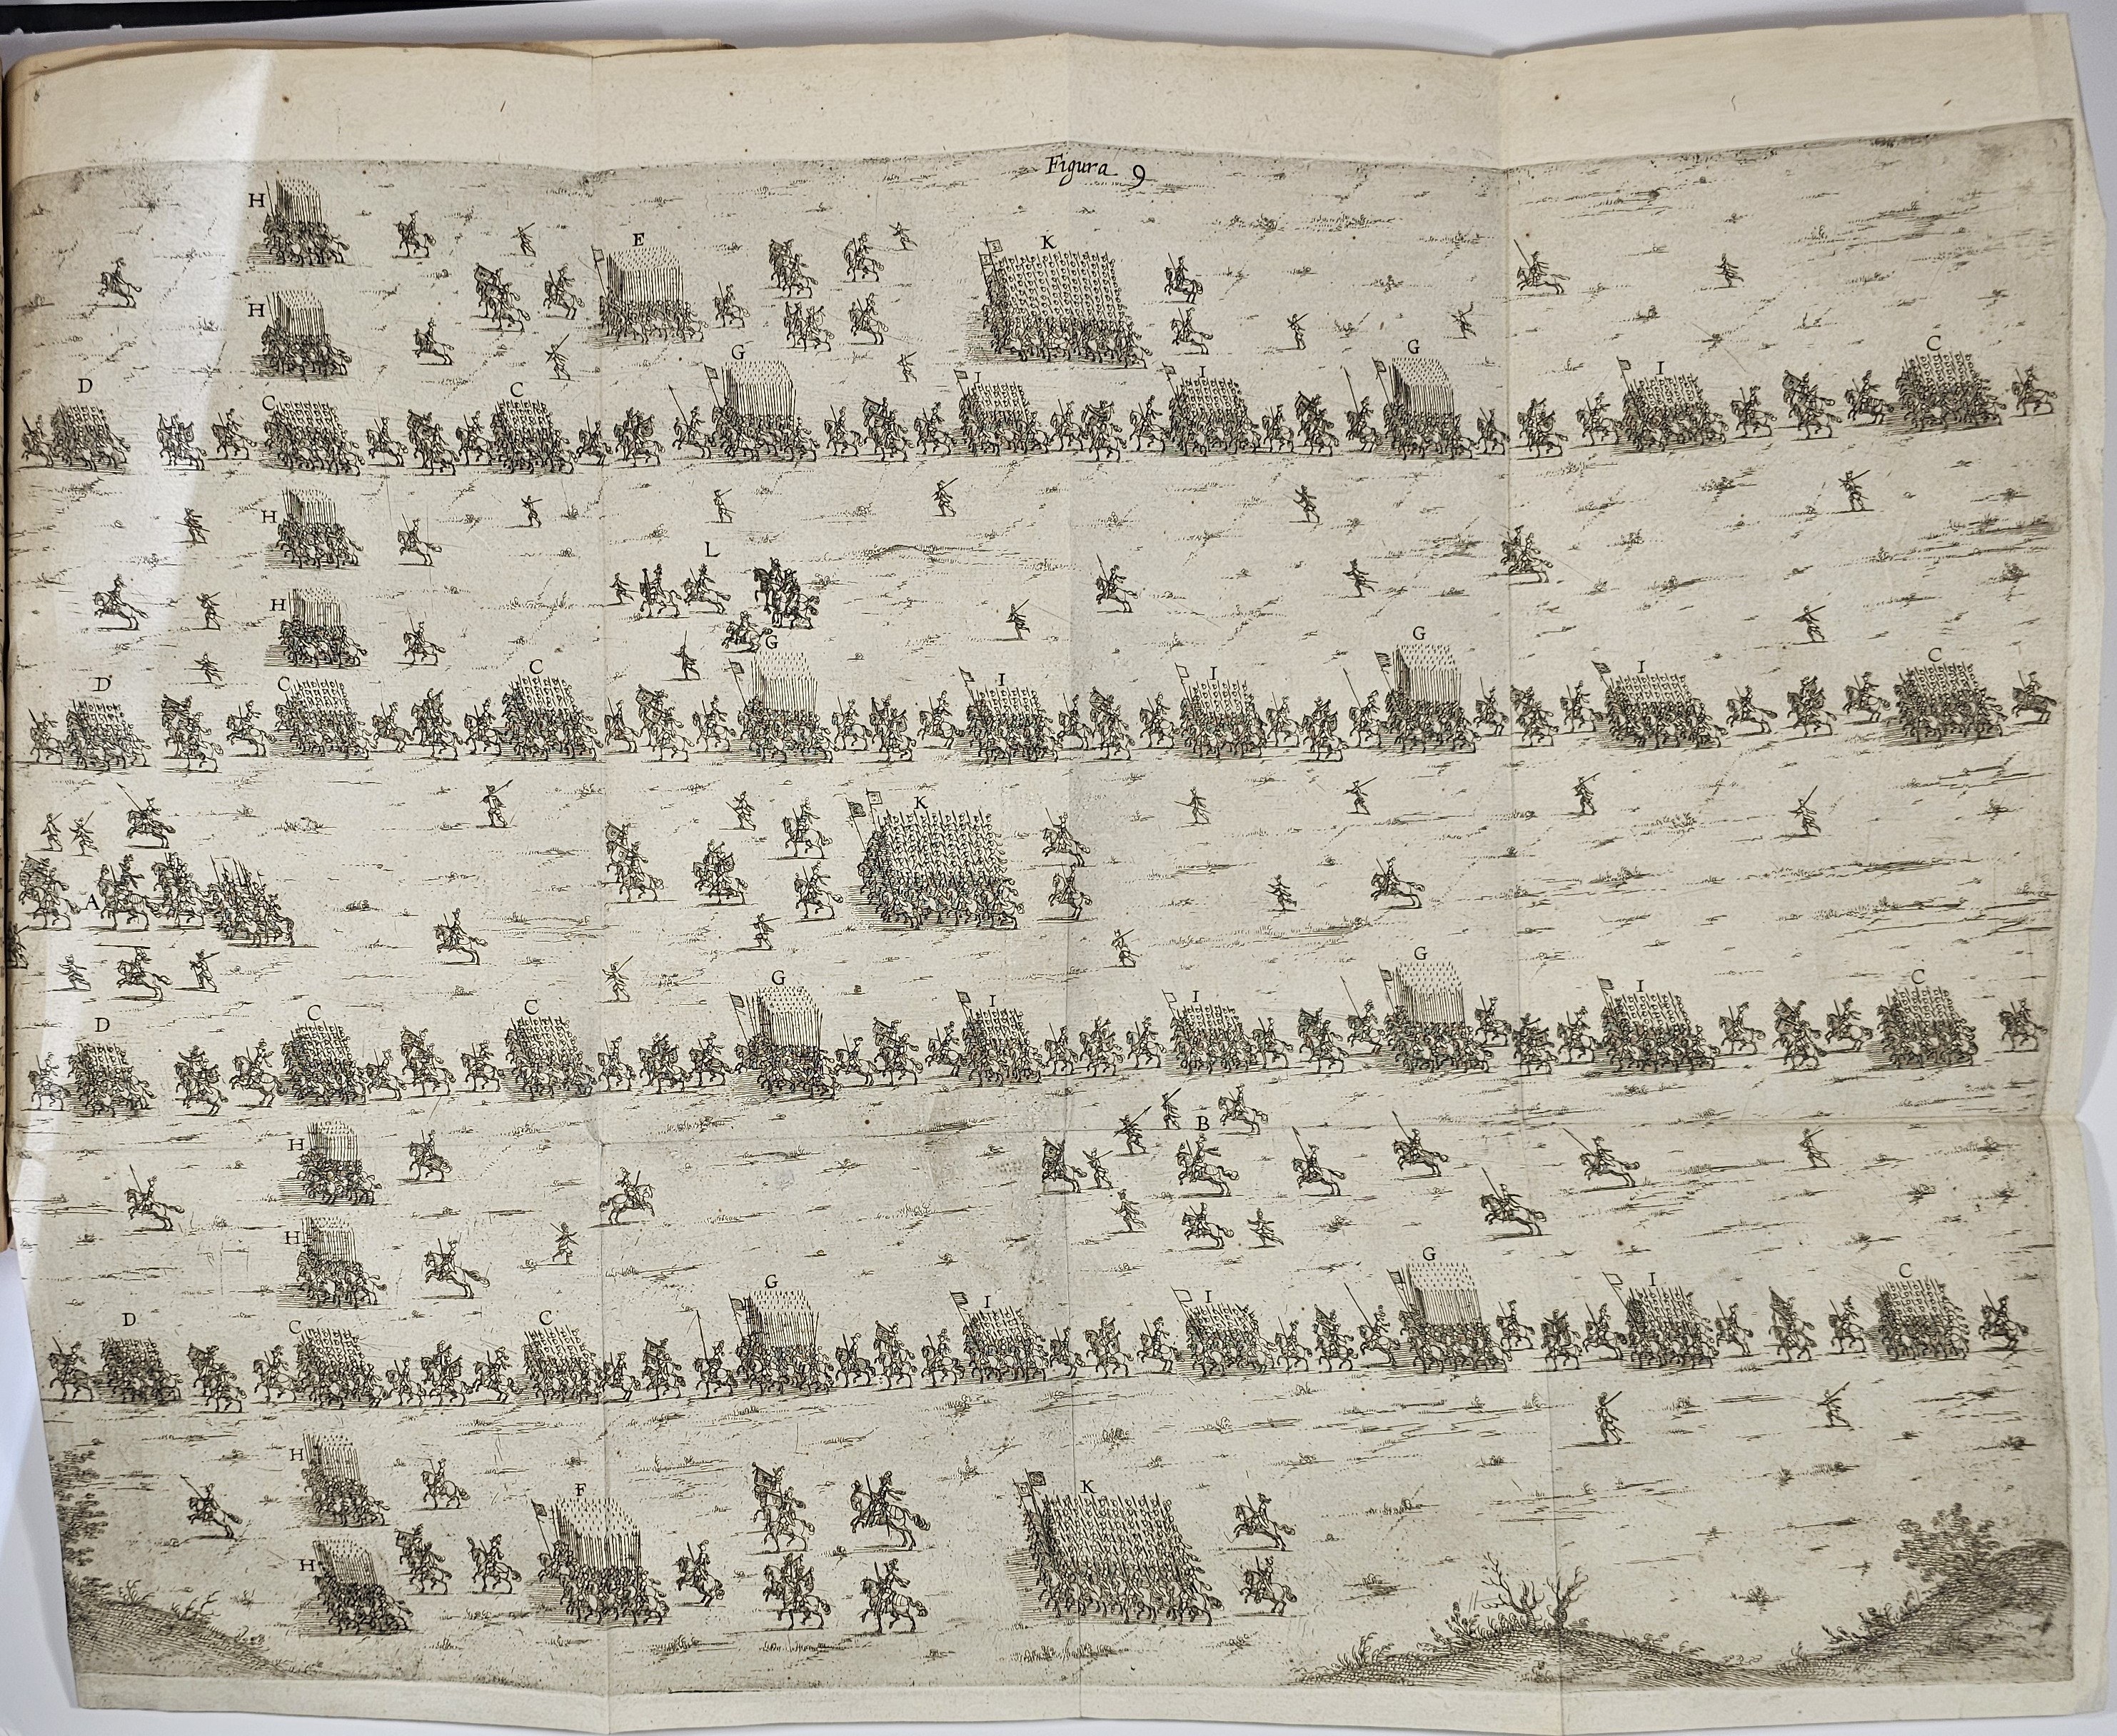 Figura 9
H
E
K
H
G
G
C
D
C
C
I
I
I
H
L
H
G
G
D
C
C
I
I
I
C
K
A
G
G
D
C
C
I
I
I
C
B
H
H
G
G
D
C
C
I
I
I
C
H
F
K
H